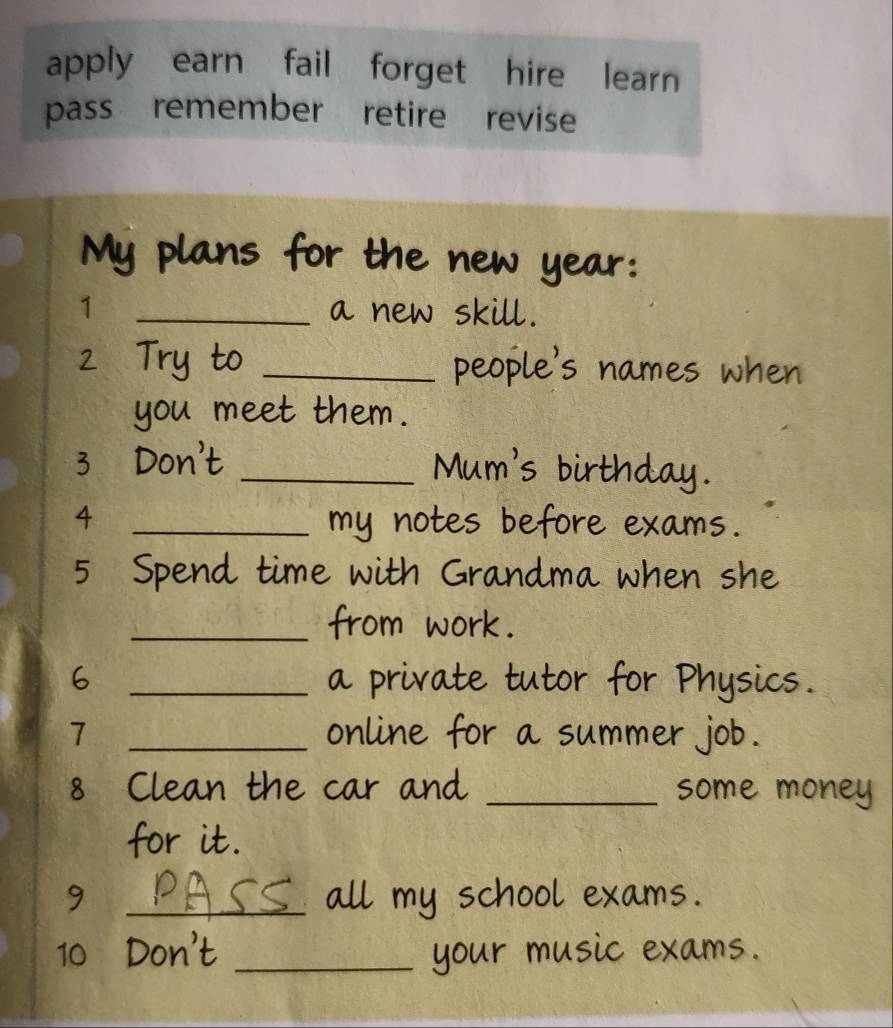 apply earn fail forget hire learn
pass remember retire revise
My plans for the new year:
1 __________ a new skill.
2 Try to __________ people's names when
you meet them.
3 Don't __________ Mum's birthday.
4 __________ my notes before exams.
5 Spend time with Grandma when she
__________ from work.
6 __________ a private tutor for Physics.
7 __________ online for a summer job.
8 Clean the car and __________ some money
for it.
9 PASS all my school exams.
10 Don't __________ your music exams.